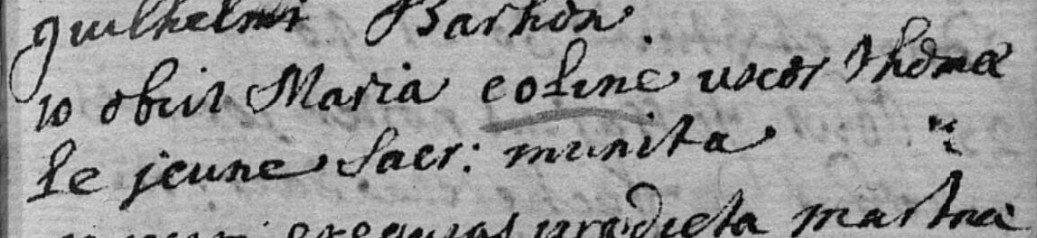 guilhelmi Barhon.
10 obiit Maria coline uxor thomæ
le jeune sacr: munita
exequias prædicta